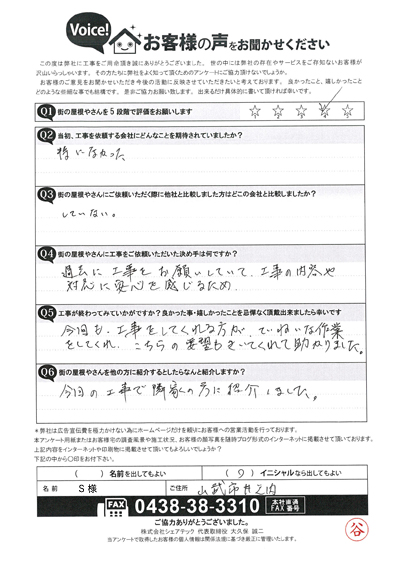 Voice!
お客様の声をお聞かせください
この度は弊社に工事をご用命頂き誠にありがとうございました。世の中には弊社の存在やサービスをご存知ないお客様が
沢山いらっしゃいます。その方たちに弊社をよく知って頂くためのアンケートにご協力頂けないでしょうか。
お客様のご意見をお聞かせいただき今後の活動に反映させていただきたいと考えております。良かったこと、嬉しかったこと
どのような些細な事でも結構です。是非ご協力お願い致します。出来るだけ具体的に書いて頂ければ幸いです。
Q1 街の屋根やさんを5段階で評価をお願いします ☆ ☆ ☆ ☆ ☆
Q2 当初、工事を依頼する会社にどんなことを期待されていましたか?
特になかった
Q3 街の屋根やさんにご依頼いただく際に他社と比較しました方はどこの会社と比較しましたか?
していない。
Q4 街の屋根やさんに工事をご依頼いただいた決め手は何ですか?
過去に工事をお願いしていて、工事の内容や
対応に安心を感じるため
Q5 工事が終わってみていかがですか?良かった事・嬉しかったことを忌憚なく頂戴出来ましたら幸いです
今回も、工事をしてくれる方が、ていねいな作業
をしてくれ、こちらの要望もきいてくれて助かりました。
Q6 街の屋根やさんを他の方に紹介するとしたらなんと紹介しますか?
今回の工事で隣家の方に紹介しました。
*弊社は広告宣伝費を極力かけない為にホームページだけを頼りにお客様への営業活動を行っております。
本アンケート用紙またはお客様宅の調査風景や施工状況、お客様の顔写真を随時ブログ形式のインターネットに掲載させて頂いております。
上記内容をインターネットや印刷物に掲載させて頂いてもよろしいでしょうか?
下記の中から〇印をお付下さい。
( ) 名前を出してもよい ( ○ ) イニシャルなら出してもよい
名前 S 様 ご住所 山武市井之内
FAX 0438-38-3310 本社直通 FAX番号
ご協力ありがとうございました。
株式会社シェアテック 代表取締役 大久保 誠二
当アンケートで取得したお客様の個人情報は関係法規に基づき厳正に管理いたします。
谷